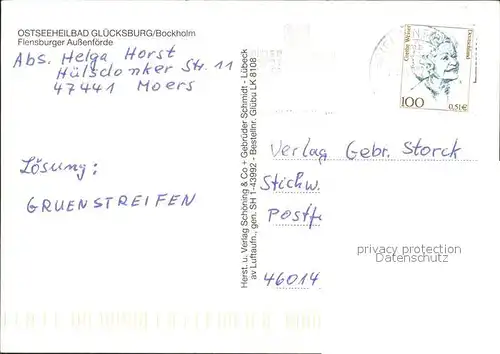 OSTSEEHEILBAD GLÜCKSBURG/Bockholm
Flensburger Außenförde
Abs. Helga Horst
Hülsdonker Str. 11
47441 Moers
Lösung:
GRUENSTREIFEN
Herst. u. Verlag Schöning & Co + Gebrüder Schmidt - Lübeck
av Luftaufn., gen. SH 1-43992 - Bestellnr. Glübu LK 8108
Deutschland
100
0,51€
Verlag Gebr. Storck
Stichw.
Postfa
46014
privacy protection
Datenschutz